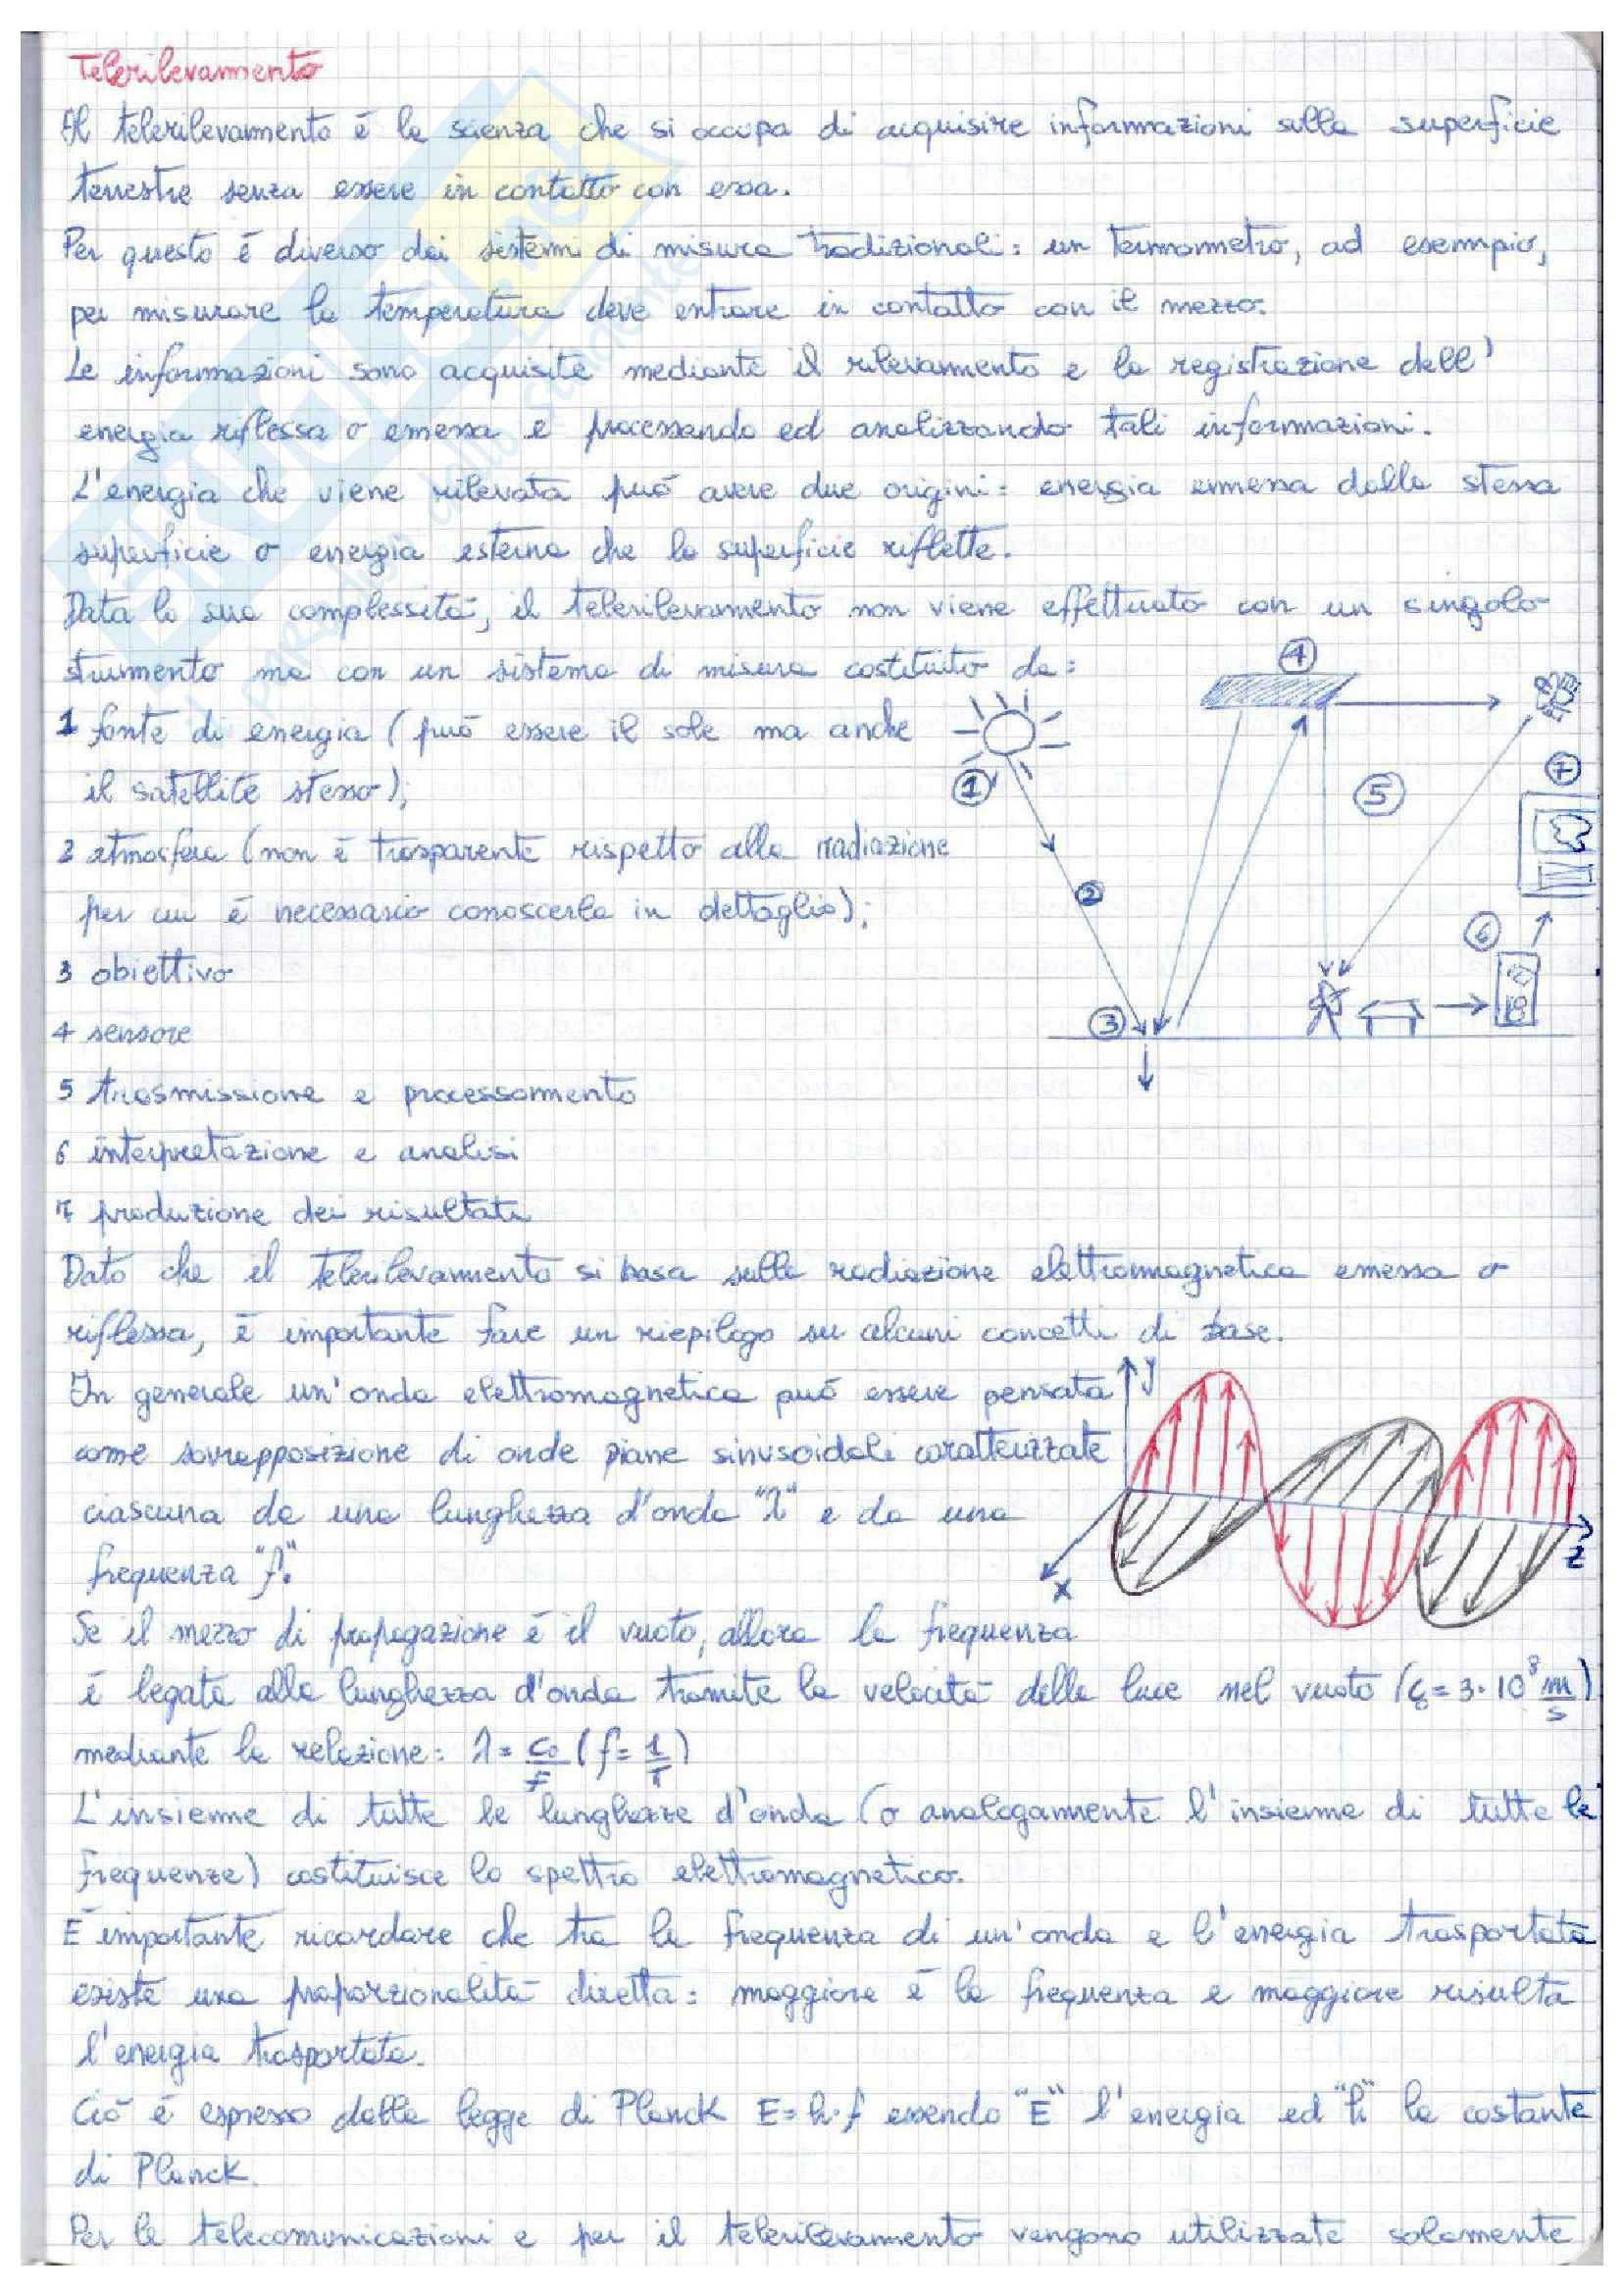 Telerilevamento
Il telerilevamento è la scienza che si occupa di acquisire informazioni sulla superficie
terrestre senza essere in contatto con essa.
Per questo è diverso dai sistemi di misura tradizionali: un termometro, ad esempio,
per misurare la temperatura deve entrare in contatto con il mezzo.
Le informazioni sono acquisite mediante il rilevamento e la registrazione dell'
energia riflessa o emessa e processando ed analizzando tali informazioni.
L'energia che viene rilevata può avere due origini: energia emessa dalla stessa
superficie o energia esterna che la superficie riflette.
Data la sua complessità, il telerilevamento non viene effettuato con un singolo
strumento ma con un sistema di misura costituito da:
1 fonte di energia (può essere il sole ma anche
il satellite stesso);
2 atmosfera (non è trasparente rispetto alla radiazione
per cui è necessario conoscerla in dettaglio);
3 obiettivo
4 sensore
5 trasmissione e processamento
6 interpretazione e analisi
7 produzione dei risultati
4
1
5
7
2
6
3
Dato che il telerilevamento si basa sulla radiazione elettromagnetica emessa o
riflessa, è importante fare un riepilogo su alcuni concetti di base.
In generale un'onda elettromagnetica può essere pensata
come sovrapposizione di onde piane sinusoidali caratterizzate
ciascuna da una lunghezza d'onda "λ" e da una
frequenza "f".
y
x
z
Se il mezzo di propagazione è il vuoto, allora la frequenza
è legata alla lunghezza d'onda tramite la velocità della luce nel vuoto (c₀ = 3·10⁸ m/s)
mediante la relazione: λ = c₀/f (f = 1/T)
L'insieme di tutte le lunghezze d'onda (o analogamente l'insieme di tutte le
frequenze) costituisce lo spettro elettromagnetico.
È importante ricordare che tra la frequenza di un'onda e l'energia trasportata
esiste una proporzionalità diretta: maggiore è la frequenza e maggiore risulta
l'energia trasportata.
Ciò è espresso dalla legge di Planck E = h·f essendo "E" l'energia ed "h" la costante
di Planck.
Per le telecomunicazioni e per il telerilevamento vengono utilizzate solamente